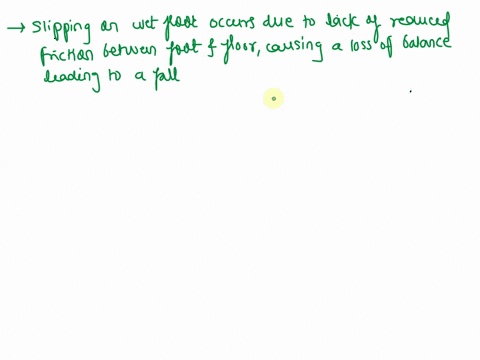 → Slipping on wet floor occurs due to lack of reduced
friction between foot & floor, causing a loss of balance
leading to a fall